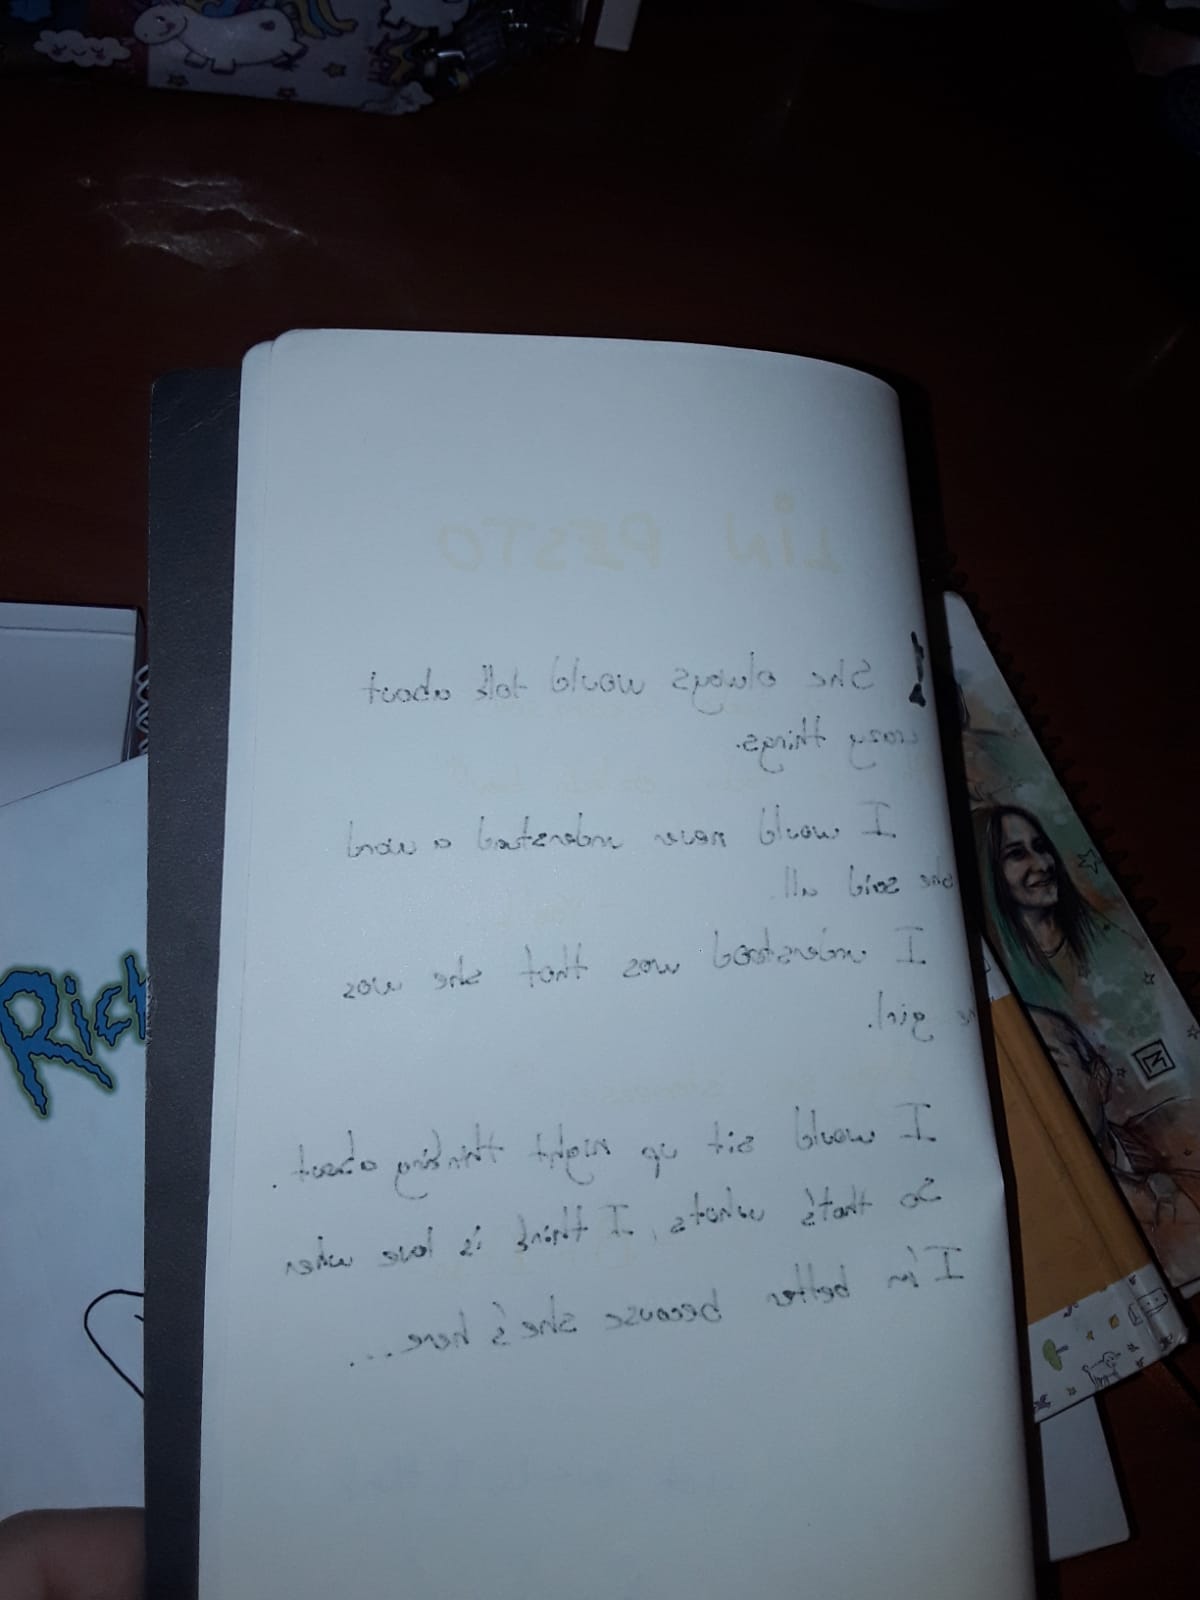 LIN PESTO
She always would talk about
crazy things.
I would never understand a word
she said all
I understood was that she was
girl.
I would sit up night thinking about.
So that's whats, I think is love when
I'm better because she's here...
Rick